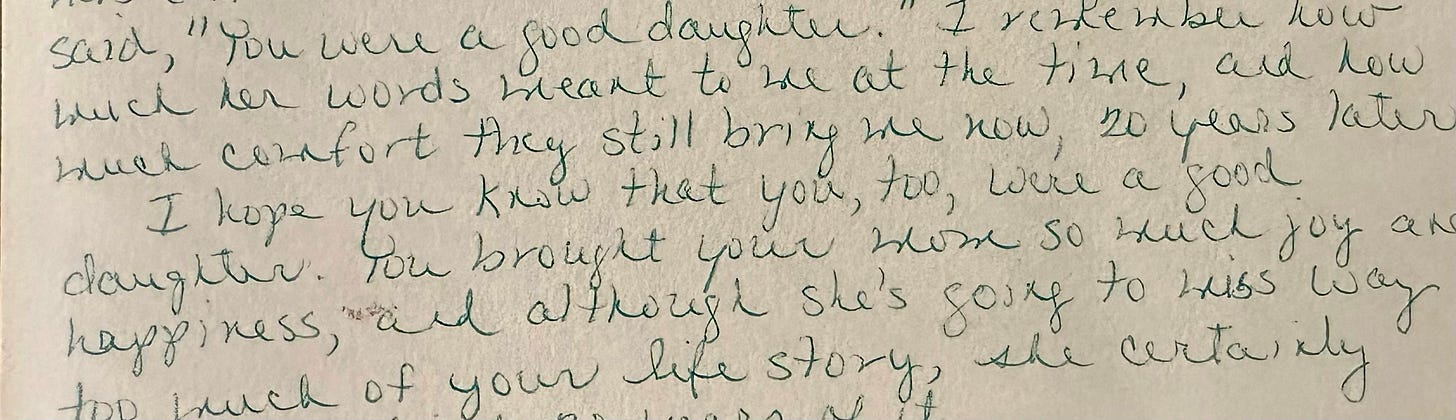 said, "You were a good daughter." I remember how
much her words meant to me at the time, and how
much comfort they still bring me now, 20 years later
I hope you know that you, too, were a good
daughter. You brought your mom so much joy an
happiness, and although she's going to miss way
too much of your life story, she certainly
years of it